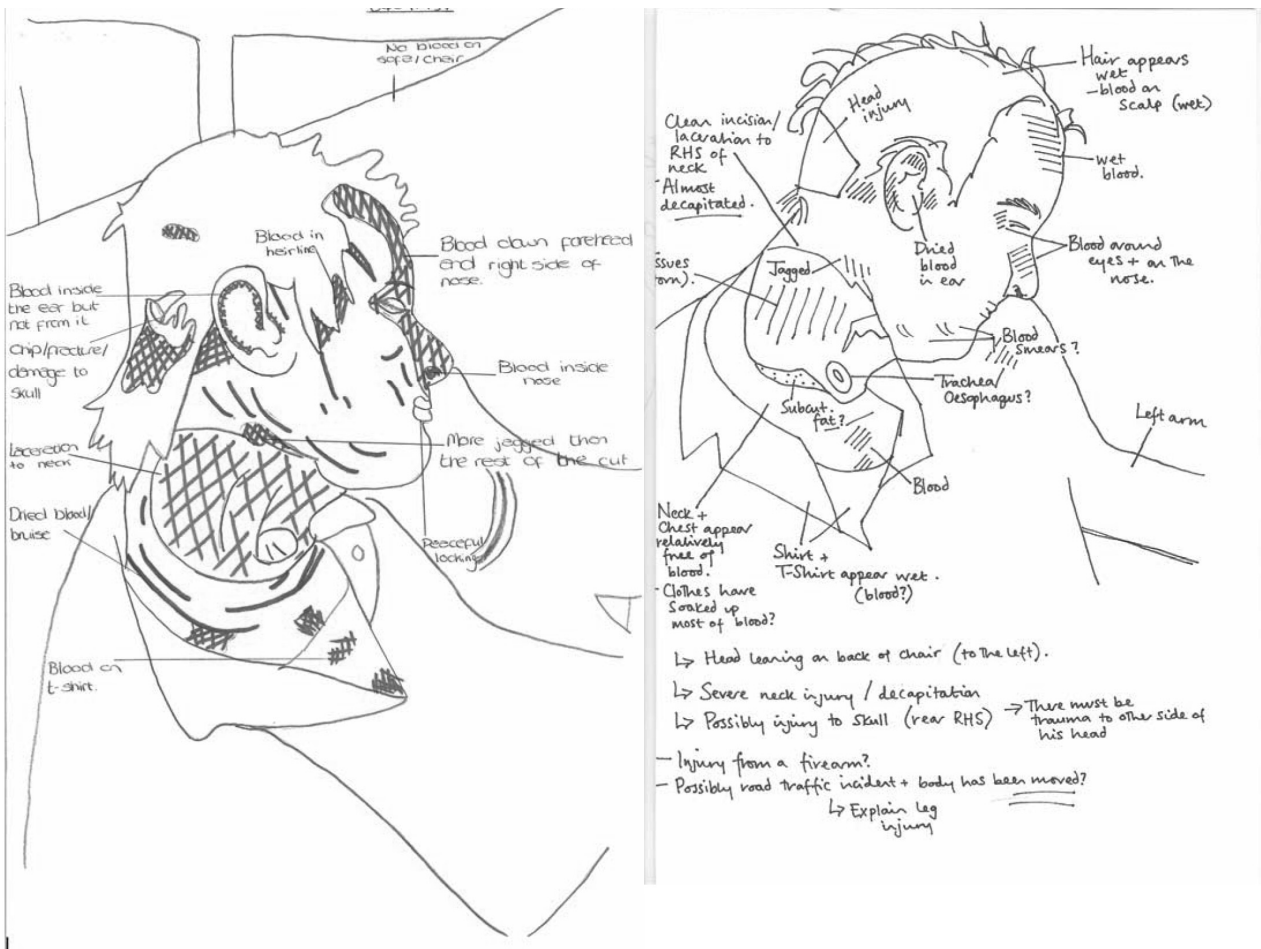 No blood on
sofa/chair
Blood in
hairline
Blood down forehead
and right side of
nose.
Blood inside
the ear but
not from it
Chip/fracture/
damage to
skull
Blood inside
nose
Laceration
to neck
More jagged than
the rest of the cut
Dried blood/
bruise
Peaceful
looking
Blood on
t-shirt.
Hair appears
wet
- blood on
scalp (wet)
Head
injury
Clean incision/
laceration to
RHS of
neck
- Almost
decapitated.
wet
blood.
Dried
blood
in ear
Blood around
eyes + on the
nose.
Jagged
Blood
smears?
Trachea/
Oesophagus?
Subcut.
fat?
Left arm
Blood
Neck +
Chest appear
relatively
free of
blood.
- Clothes have
soaked up
most of blood?
Shirt +
T-Shirt appear wet.
(blood?)
↳ Head leaning on back of chair (to the left).
↳ Severe neck injury / decapitation
↳ Possibly injury to skull (rear RHS) → There must be
trauma to other side of
his head
- Injury from a firearm?
- Possibly road traffic incident + body has been moved?
↳ Explain leg
injury